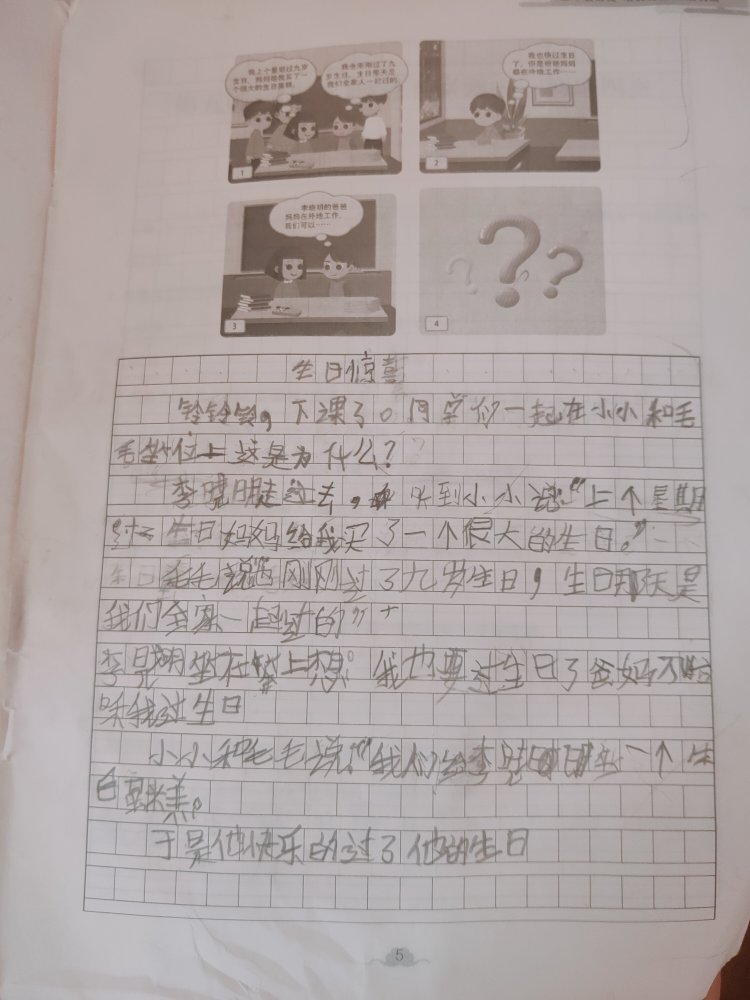 我上个星期过九岁
生日，妈妈给我买了一
个很大的生日蛋糕。
我也刚刚过了九
岁生日，生日那天是
我们全家人一起过的。
1
我也快过生日
了，但是爸爸妈妈
都在外地工作……
2
李晓明的爸爸
妈妈在外地工作，
我们可以……
3
4
生日惊喜
铃铃铃，下课了。同学们一起在小小和毛
毛坐位上这是为什么？
李晓明走过去，听到小小说：“上个星期
生日妈妈给我买了一个很大的生日。”
毛毛说 刚刚过了九岁生日，生日那天是
我们全家一起过的”
李晓明坐在 上想：我也要过生日了爸妈不
我过生日
小小和毛毛说：“我们给李晓明 一个生
日
于是他快乐的过了他的生日
5